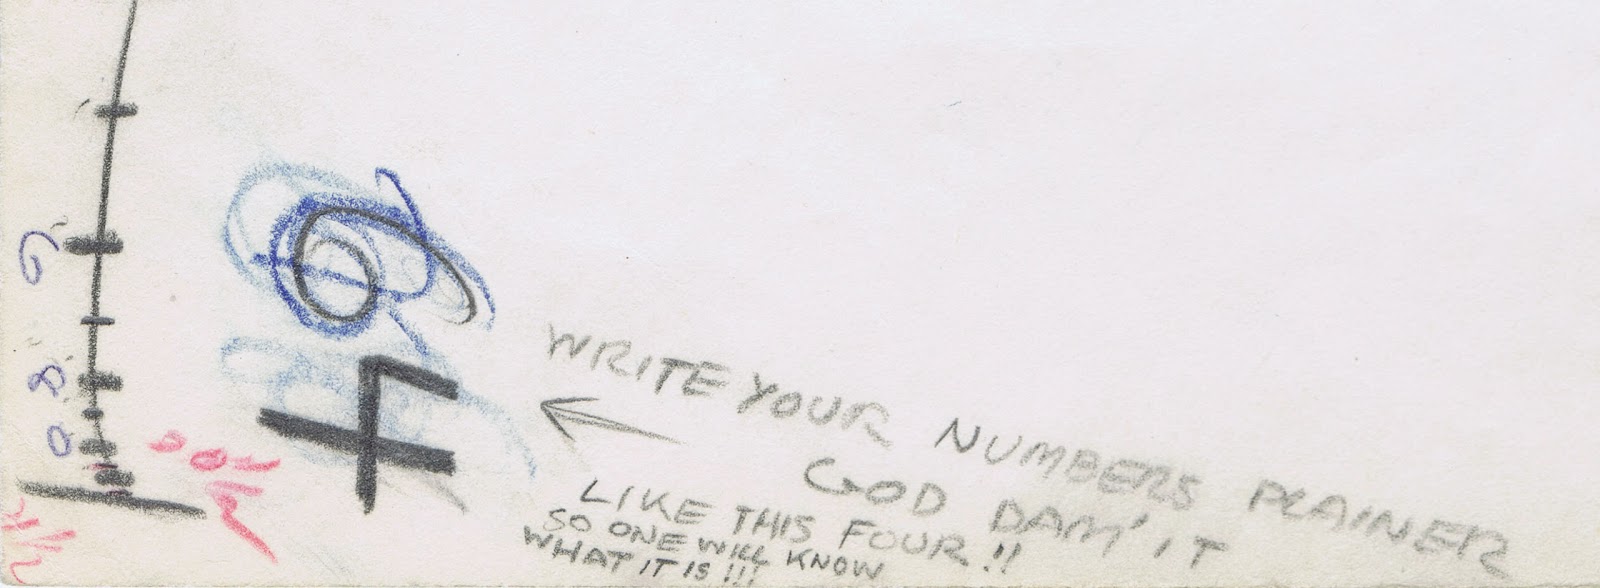 WRITE YOUR NUMBERS PLAINER
GOD DAM'IT
LIKE THIS FOUR!!
SO ONE WILL KNOW
WHAT IT IS!!!